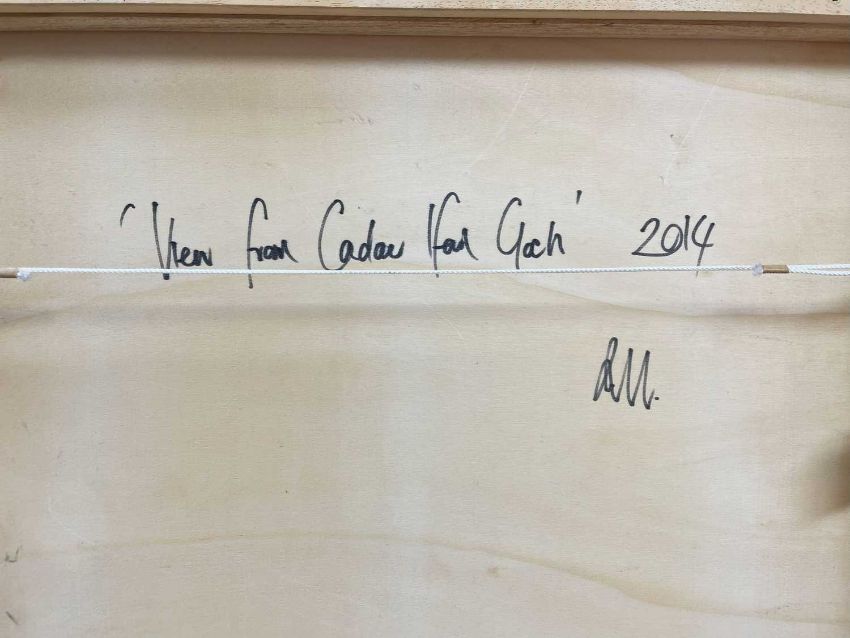 'View from Cadair Ifan Goch' 2014